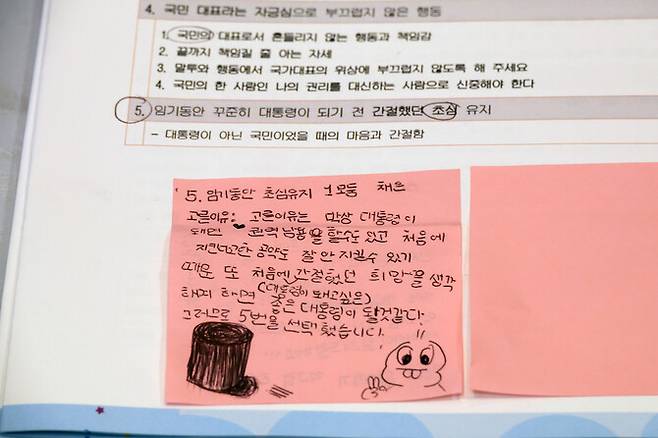 4. 국민 대표라는 자긍심으로 부끄럽지 않은 행동
1. 국민의 대표로서 흔들리지 않는 행동과 책임감
2. 끝까지 책임질 줄 아는 자세
3. 말투와 행동에서 국가대표의 위상에 부끄럽지 않도록 해 주세요
4. 국민의 한 사람인 나의 권리를 대신하는 사람으로 신중해야 한다
5. 임기동안 꾸준히 대통령이 되기 전 간절했던 초심 유지
- 대통령이 아닌 국민이었을 때의 마음과 간절함
5. 임기동안 초심유지 1모둠 채은
고른이유: 고른이유는 막상 대통령이
돼면 권력남용을 할수도 있고 처음에
지킨다고한 공약도 잘 안 지킬수 있기
때문 또 처음에 간절했던 희망을 생각
하게 하면 (대통령이 돼고싶은)
좋은 대통령이 될것같다.
그러므로 5번을 선택했습니다.